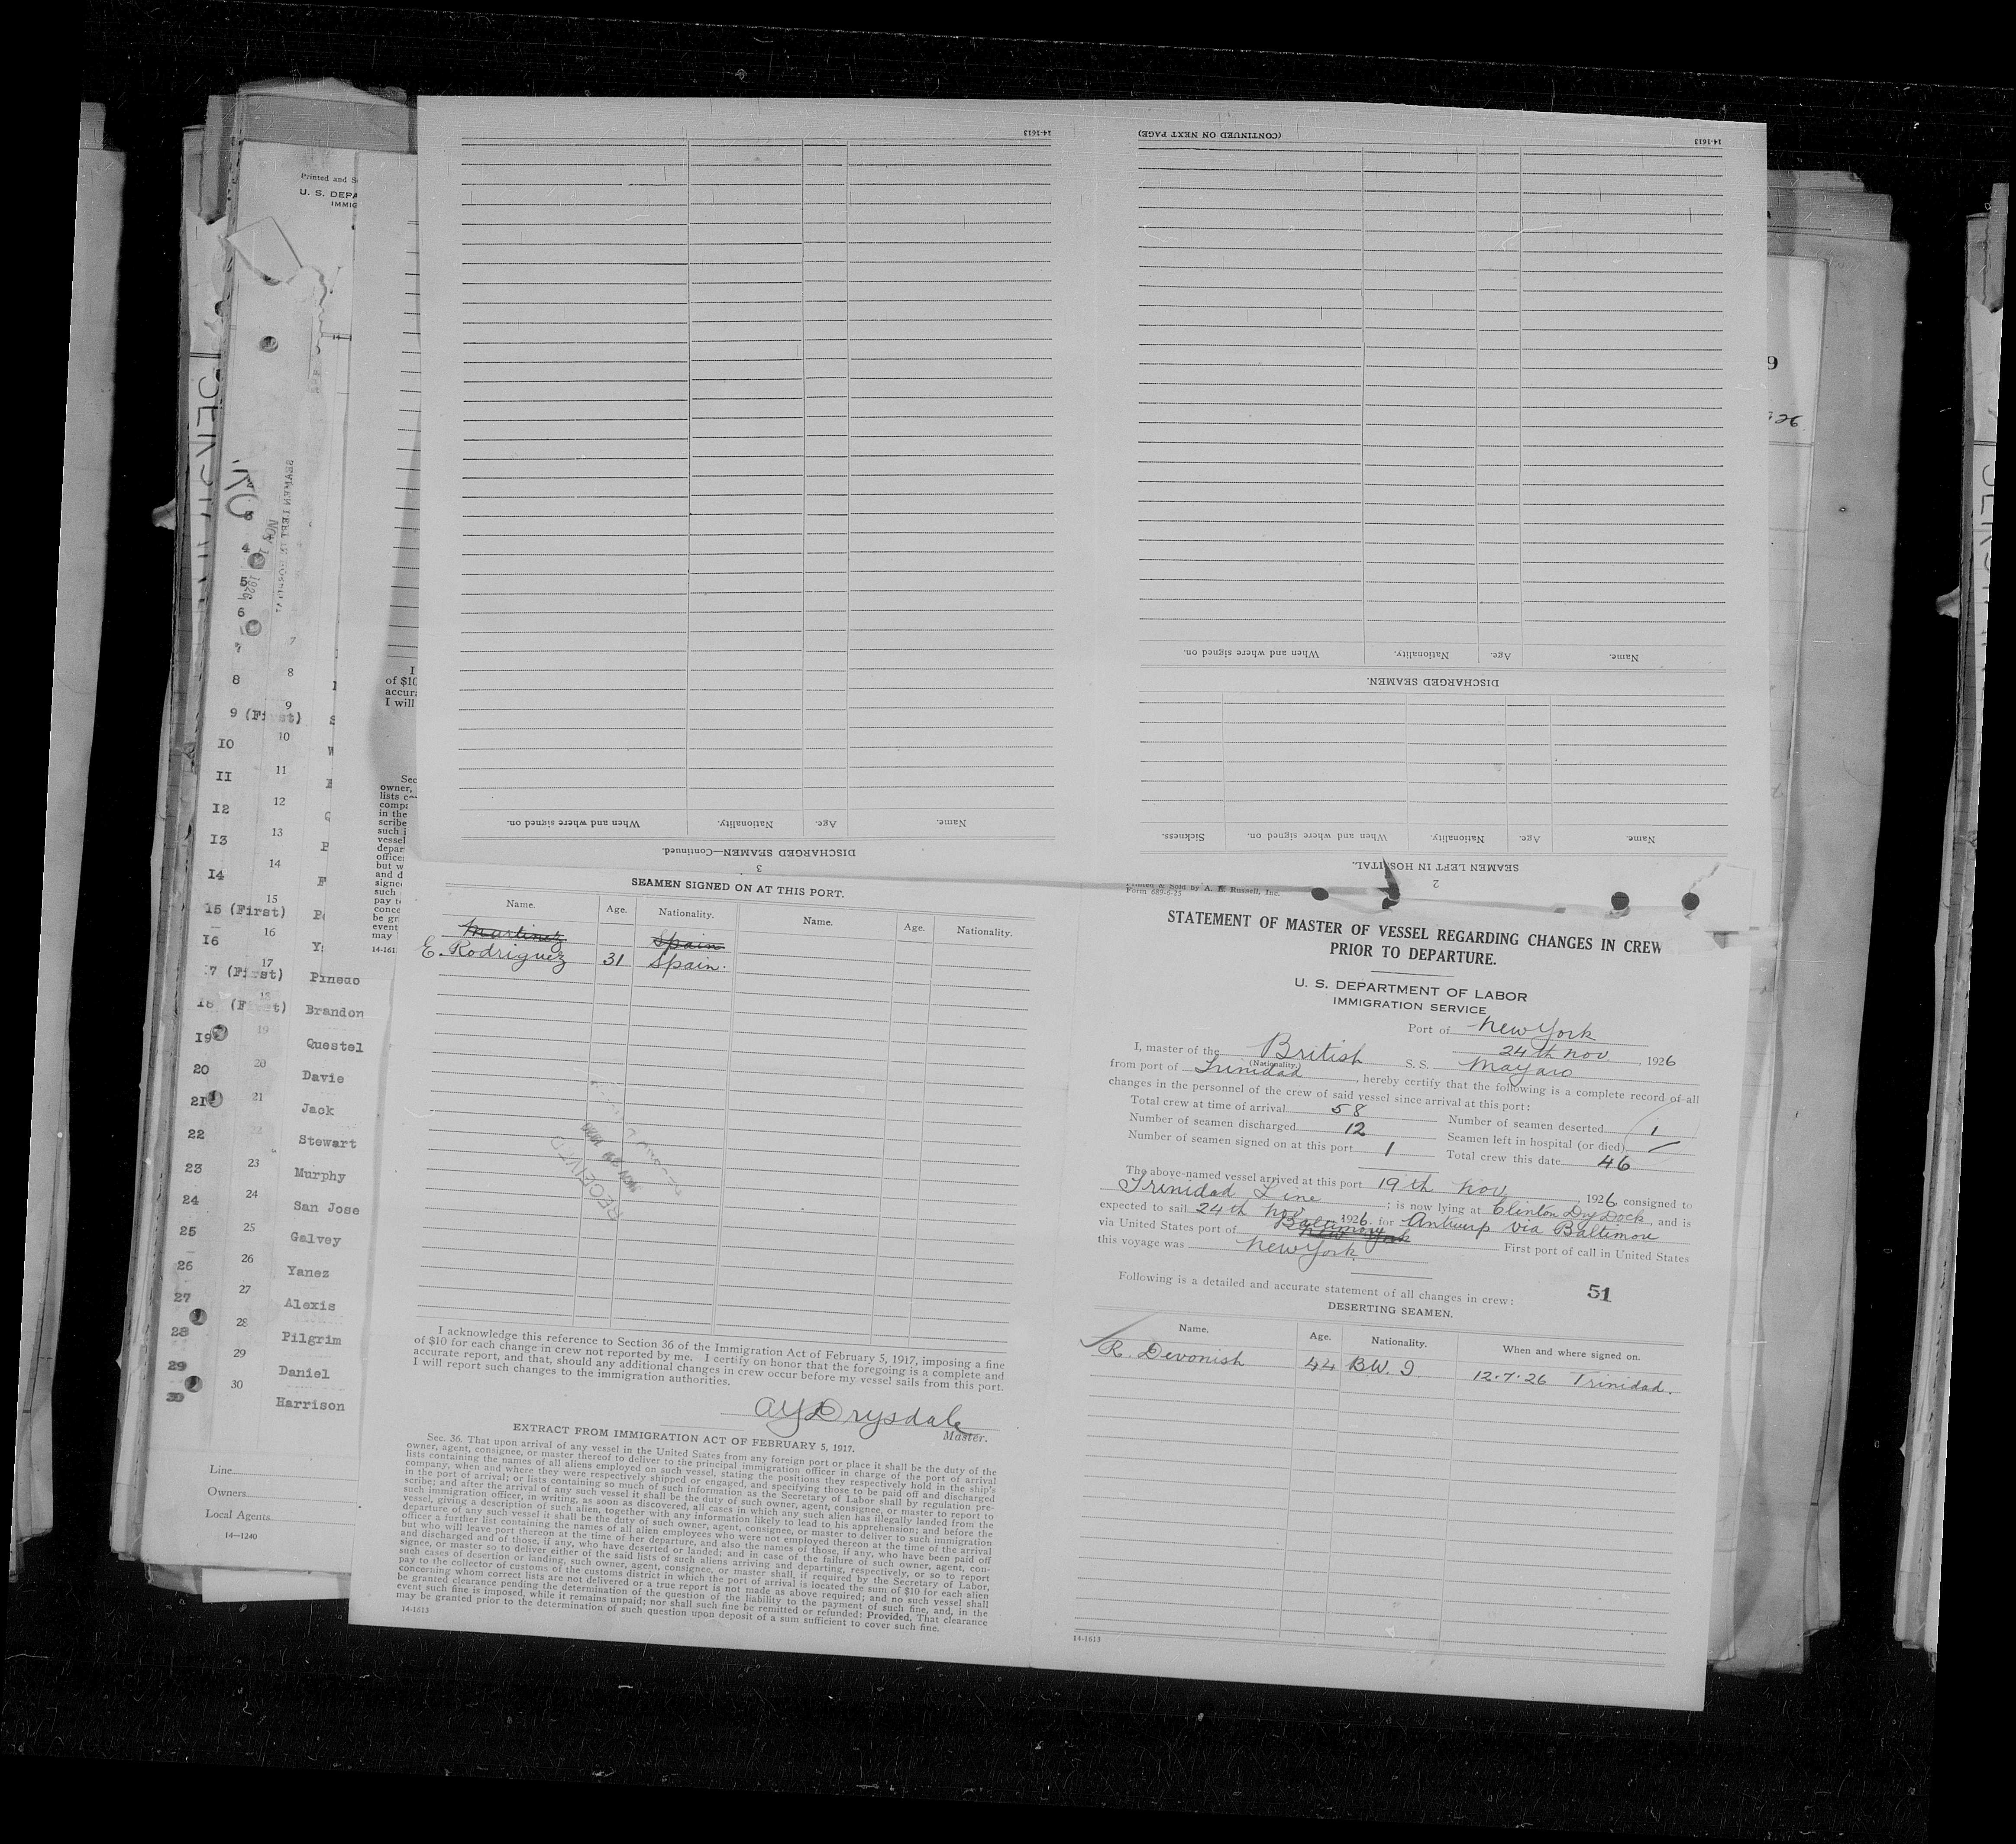 14-1613
(CONTINUED ON NEXT PAGE)
14-1613
When and where signed on.
Nationality.
Age.
Name.
DISCHARGED SEAMEN.
Sickness.
When and where signed on.
Nationality.
Age.
Name.
SEAMEN LEFT IN HOSPITAL.
2
When and where signed on.
Nationality.
Age.
Name.
DISCHARGED SEAMEN—Continued.
3
SEAMEN SIGNED ON AT THIS PORT.
Name. Age. Nationality. Name. Age. Nationality.
Martinez Spain
E. Rodriguez 31 Spain.
RECEIVED
I acknowledge this reference to Section 36 of the Immigration Act of February 5, 1917, imposing a fine
of $10 for each change in crew not reported by me. I certify on honor that the foregoing is a complete and
accurate report, and that, should any additional changes in crew occur before my vessel sails from this port.
I will report such changes to the immigration authorities.
AY Drysdale
Master.
EXTRACT FROM IMMIGRATION ACT OF FEBRUARY 5, 1917.
Sec. 36. That upon arrival of any vessel in the United States from any foreign port or place it shall be the duty of the
owner, agent, consignee, or master thereof to deliver to the principal immigration officer in charge of the port of arrival
lists containing the names of all aliens employed on such vessel, stating the positions they respectively hold in the ship's
company, when and where they were respectively shipped or engaged, and specifying those to be paid off and discharged
in the port of arrival; or lists containing so much of such information as the Secretary of Labor shall by regulation pre-
scribe; and after the arrival of any such vessel it shall be the duty of such owner, agent, consignee, or master to report to
such immigration officer, in writing, as soon as discovered, all cases in which any such alien has illegally landed from the
vessel, giving a description of such alien, together with any information likely to lead to his apprehension; and before the
departure of any such vessel it shall be the duty of such owner, agent, consignee, or master to deliver to such immigration
officer a further list containing the names of all alien employees who were not employed thereon at the time of the arrival
but who will leave port thereon at the time of her departure, and also the names of those, if any, who have been paid off
and discharged and of those, if any, who have deserted or landed; and in case of the failure of such owner, agent, con-
signee, or master so to deliver either of the said lists of such aliens arriving and departing, respectively, or so to report
such cases of desertion or landing, such owner, agent, consignee, or master shall, if required by the Secretary of Labor,
pay to the collector of customs of the customs district in which the port of arrival is located the sum of $10 for each alien
concerning whom correct lists are not delivered or a true report is not made as above required; and no such vessel shall
be granted clearance pending the determination of the question of the liability to the payment of such fine, and, in the
event such fine is imposed, while it remains unpaid; nor shall such fine be remitted or refunded: Provided, That clearance
may be granted prior to the determination of such question upon deposit of a sum sufficient to cover such fine.
14-1613
Printed & Sold by A. E. Russell, Inc.
Form 689-6-25
STATEMENT OF MASTER OF VESSEL REGARDING CHANGES IN CREW
PRIOR TO DEPARTURE.
U. S. DEPARTMENT OF LABOR
IMMIGRATION SERVICE
Port of New York
24th Nov, 1926
I, master of the British S. S. Mayaro
(Nationality.)
from port of Trinidad, hereby certify that the following is a complete record of all
changes in the personnel of the crew of said vessel since arrival at this port:
Total crew at time of arrival 58
Number of seamen deserted 1
Number of seamen discharged 12
Seamen left in hospital (or died) /
Number of seamen signed on at this port 1
Total crew this date 46
The above-named vessel arrived at this port 19th Nov, 1926, consigned to
Trinidad Line; is now lying at Clinton Dry Dock, and is
expected to sail 24th Nov 1926, for Antwerp via Baltimore
via United States port of Baltimore New York First port of call in United States
this voyage was New York
Following is a detailed and accurate statement of all changes in crew:
51
DESERTING SEAMEN.
Name. Age. Nationality. When and where signed on.
R. Devonish 44 B.W.I 12.7.26 Trinidad.
14-1613
Printed and S
U. S. DEPA
IMMIG
SEAMEN LEFT IN HOSPITAL
NOV 1 1926
4
5
6
7
7
8
8
9 (First)
9
10
10
11
11
12
12
13
13
14
14
15 (First)
15
16
16
17 (First) Pinedo
17
18 (First) Brandon
18
19 Questel
19
20 Davie
20
21 Jack
21
22 Stewart
22
23 Murphy
23
24 San Jose
24
25 Galvey
25
26 Yanez
26
27 Alexis
27
28 Pilgrim
28
29 Daniel
29
30 Harrison
30
Line
Owners
Local Agents
14—1240
I
of $10
accura
I will
Sec
owner,
lists c
compa
in the
scribe
such i
vessel
depar
office
but w
and d
signe
such
pay t
conce
be gr
event
may
14-161
9
26